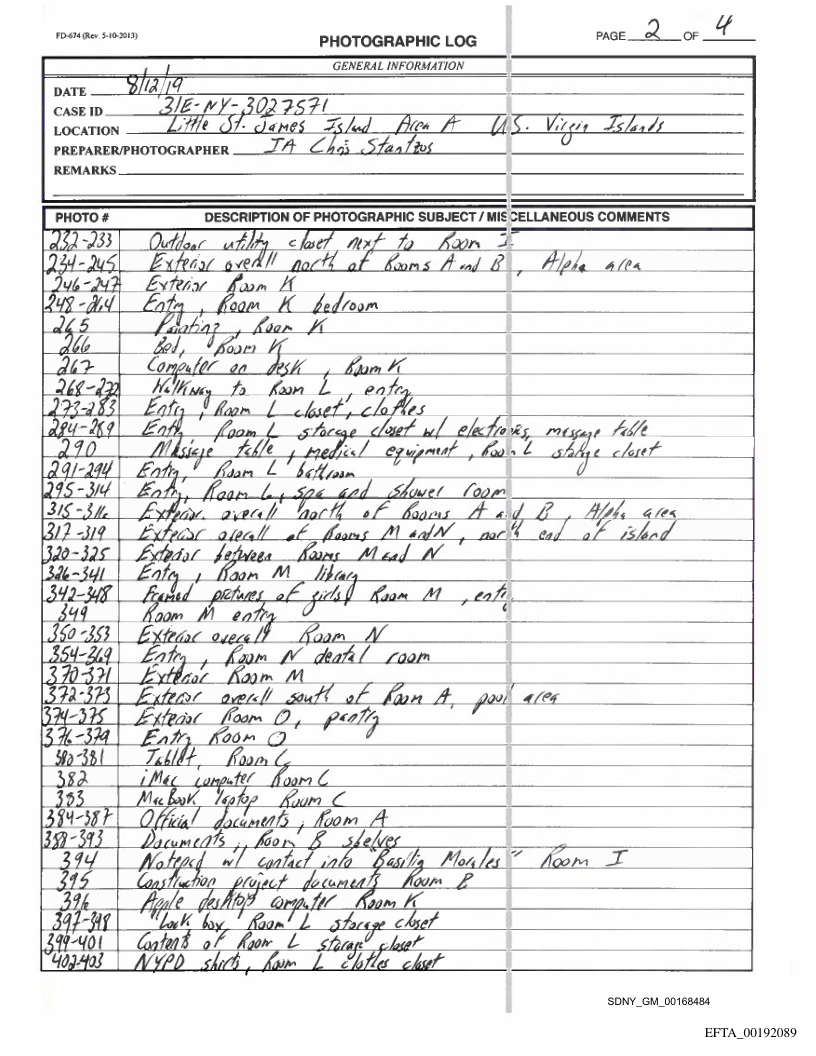 FD-674 (Rev. 5-10-2013)
PHOTOGRAPHIC LOG
PAGE 2 OF 4
GENERAL INFORMATION
DATE 8/12/19
CASE ID 31E-NY-3027571
LOCATION Little St. James Island Area A U.S. Virgin Islands
PREPARER/PHOTOGRAPHER IA Chris Stantzos
REMARKS
PHOTO # DESCRIPTION OF PHOTOGRAPHIC SUBJECT / MISCELLANEOUS COMMENTS
232-233 Outdoor utility closet next to Room I
234-245 Exterior overall north of Rooms A and B, Alpha area
246-247 Exterior Room K
248-264 Entry, Room K bedroom
265 Painting, Room K
266 Bed, Room K
267 Computer on desk, Room K
268-272 Walkway to Room L, entry
273-283 Entry, Room L closet, clothes
284-289 Entry Room L storage closet w/ electronics, massage table
290 Massage table, medical equipment, Room L storage closet
291-294 Entry, Room L bathroom
295-314 Entry, Room L, spa and shower room
315-316 Exterior overall north of Rooms A and B, Alpha area
317-319 Exterior overall of Rooms M and N, north end of island
320-325 Exterior between Rooms M and N
326-341 Entry, Room M library
342-348 Framed pictures of girls, Room M, entry
349 Room M entry
350-353 Exterior overall Room N
354-369 Entry, Room N dental room
370-371 Exterior Room M
372-373 Exterior overall south of Room A, pool area
374-375 Exterior Room O, pantry
376-379 Entry Room O
380-381 Tablet, Room C
382 iMac computer Room C
383 MacBook laptop Room C
384-387 Official documents, Room A
388-393 Documents, Room B shelves
394 Notepad w/ contact info "Basilia Morales" Room I
395 Construction project documents Room B
396 Apple desktop computer Room K
397-398 Lock box, Room L storage closet
399-401 Contents of Room L storage closet
402-403 NYPD shirts, Room L clothes closet
SDNY_GM_00168484
EFTA_00192089